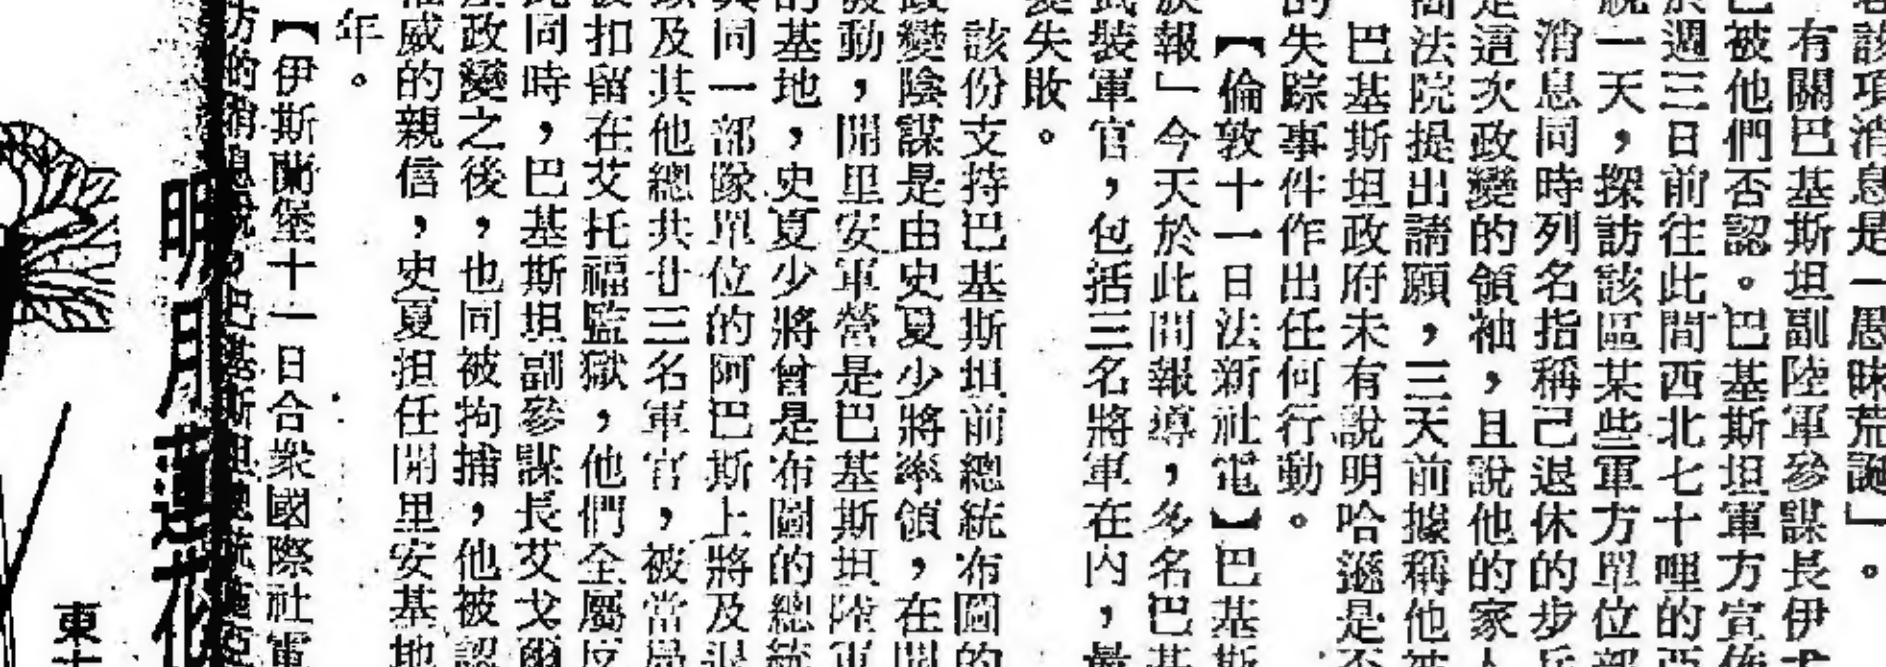 該項消息是一愚昧荒誕」。
有關巴基斯坦副陸軍參謀長伊
被他們否認。巴基斯坦軍方宣佈
於週三日前往此間西北七十哩的
一天，探訪該區某些軍方單位部
消息同時列名指稱己退休的步兵
是這次政變的領袖，且說他的家人
法院提出請願，三天前據稱他被
巴基斯坦政府未有說明哈遜是否
的失踪事件作出任何行動。
【倫敦十一日法新社電】巴基斯
報」今天於此間報導，多名巴基
武裝軍官，包括三名將軍在內，最
失敗。
該份支持巴基斯坦前總統布圖的
政變陰謀是由史夏少將率領，在開
發動，開里安軍營是巴基斯坦陸軍
的基地，史夏少將曾是布圖的總統
同一部隊單位的阿巴斯上將及退
以及其他總共廿三名軍官，被當局
被扣留在艾托福監獄，他們全屬反
此同時，巴基斯坦副參謀長艾戈爾
政變之後，也同被拘捕，他被認
權威的親信，史夏担任開里安基地
年。
【伊斯蘭堡十一日合衆國際社電
明月蓮花
東方